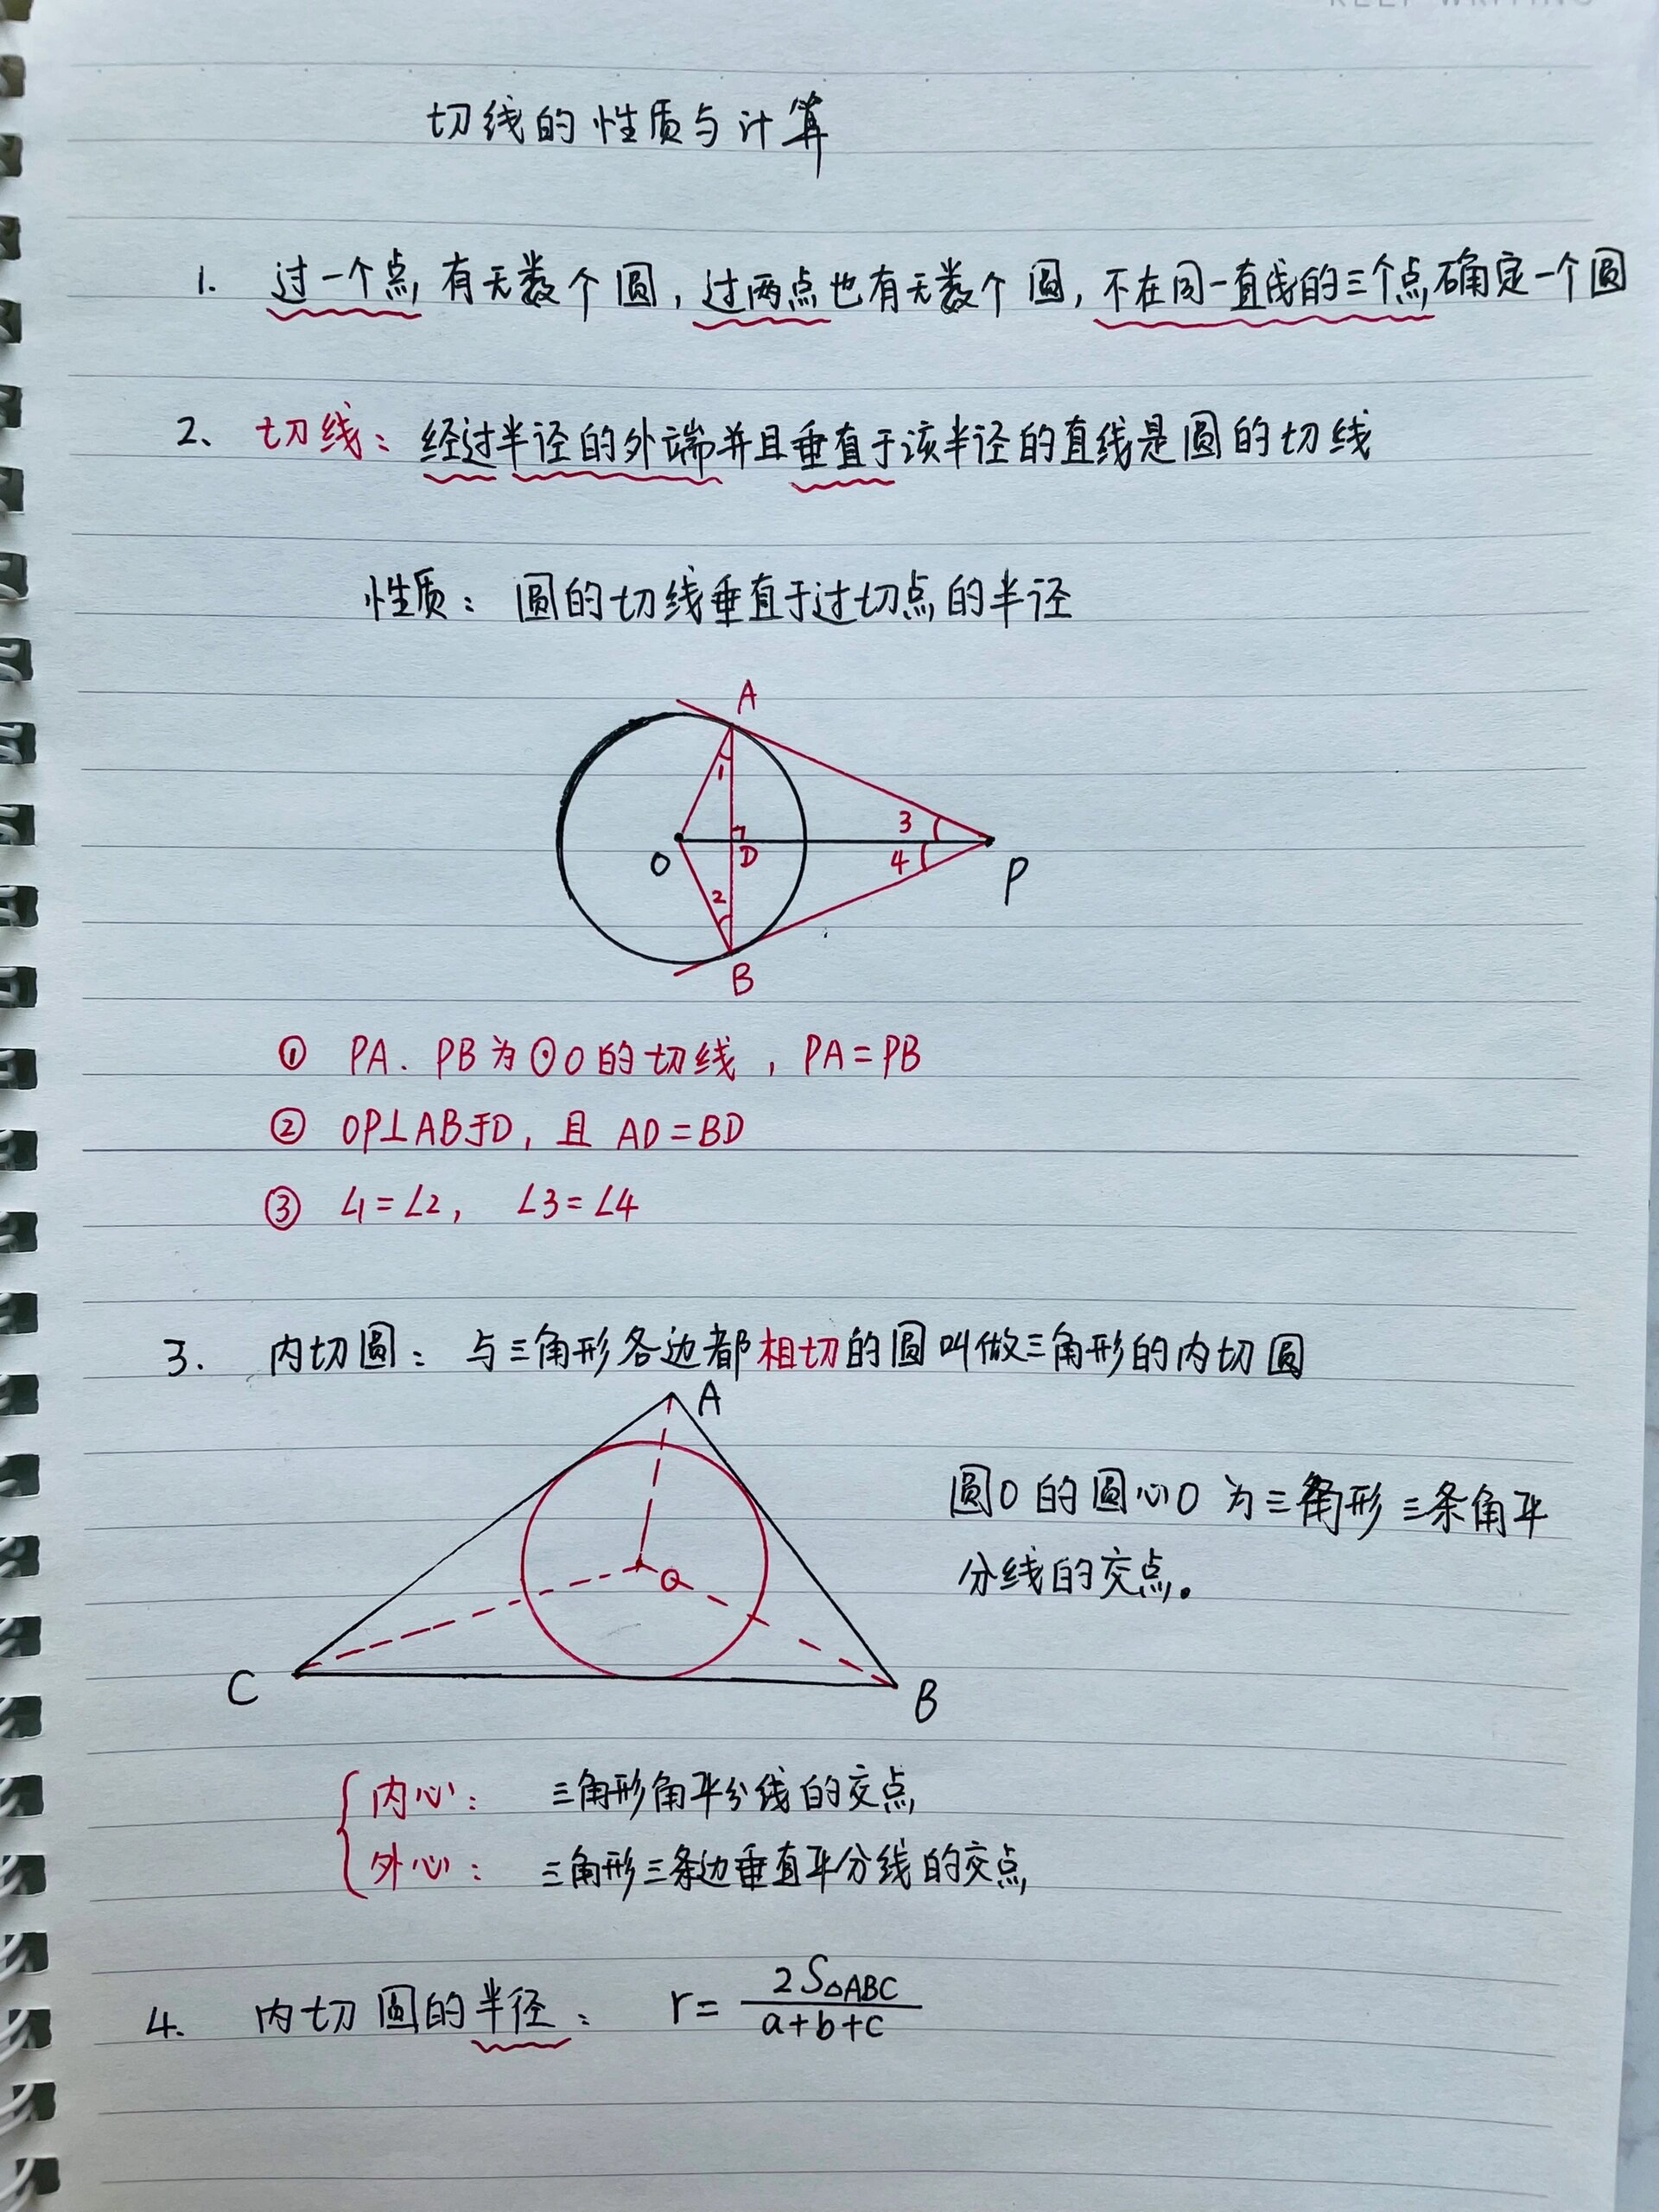 KEEP WRITING
切线的性质与计算
1. 过一个点有无数个圆，过两点也有无数个圆，不在同一直线的三个点确定一个圆
2、切线：经过半径的外端并且垂直于该半径的直线是圆的切线
性质：圆的切线垂直于过切点的半径
A
1
3
O
D
4
P
2
B
① PA．PB为⊙O的切线，PA=PB
② OP⊥AB于D，且 AD=BD
③ ∠1=∠2，∠3=∠4
3. 内切圆：与三角形各边都相切的圆叫做三角形的内切圆
A
圆O的圆心O为三角形三条角平
分线的交点。
O
C
B
内心：三角形角平分线的交点
外心：三角形三条边垂直平分线的交点
4. 内切圆的半径：r= 2S△ABC / a+b+c